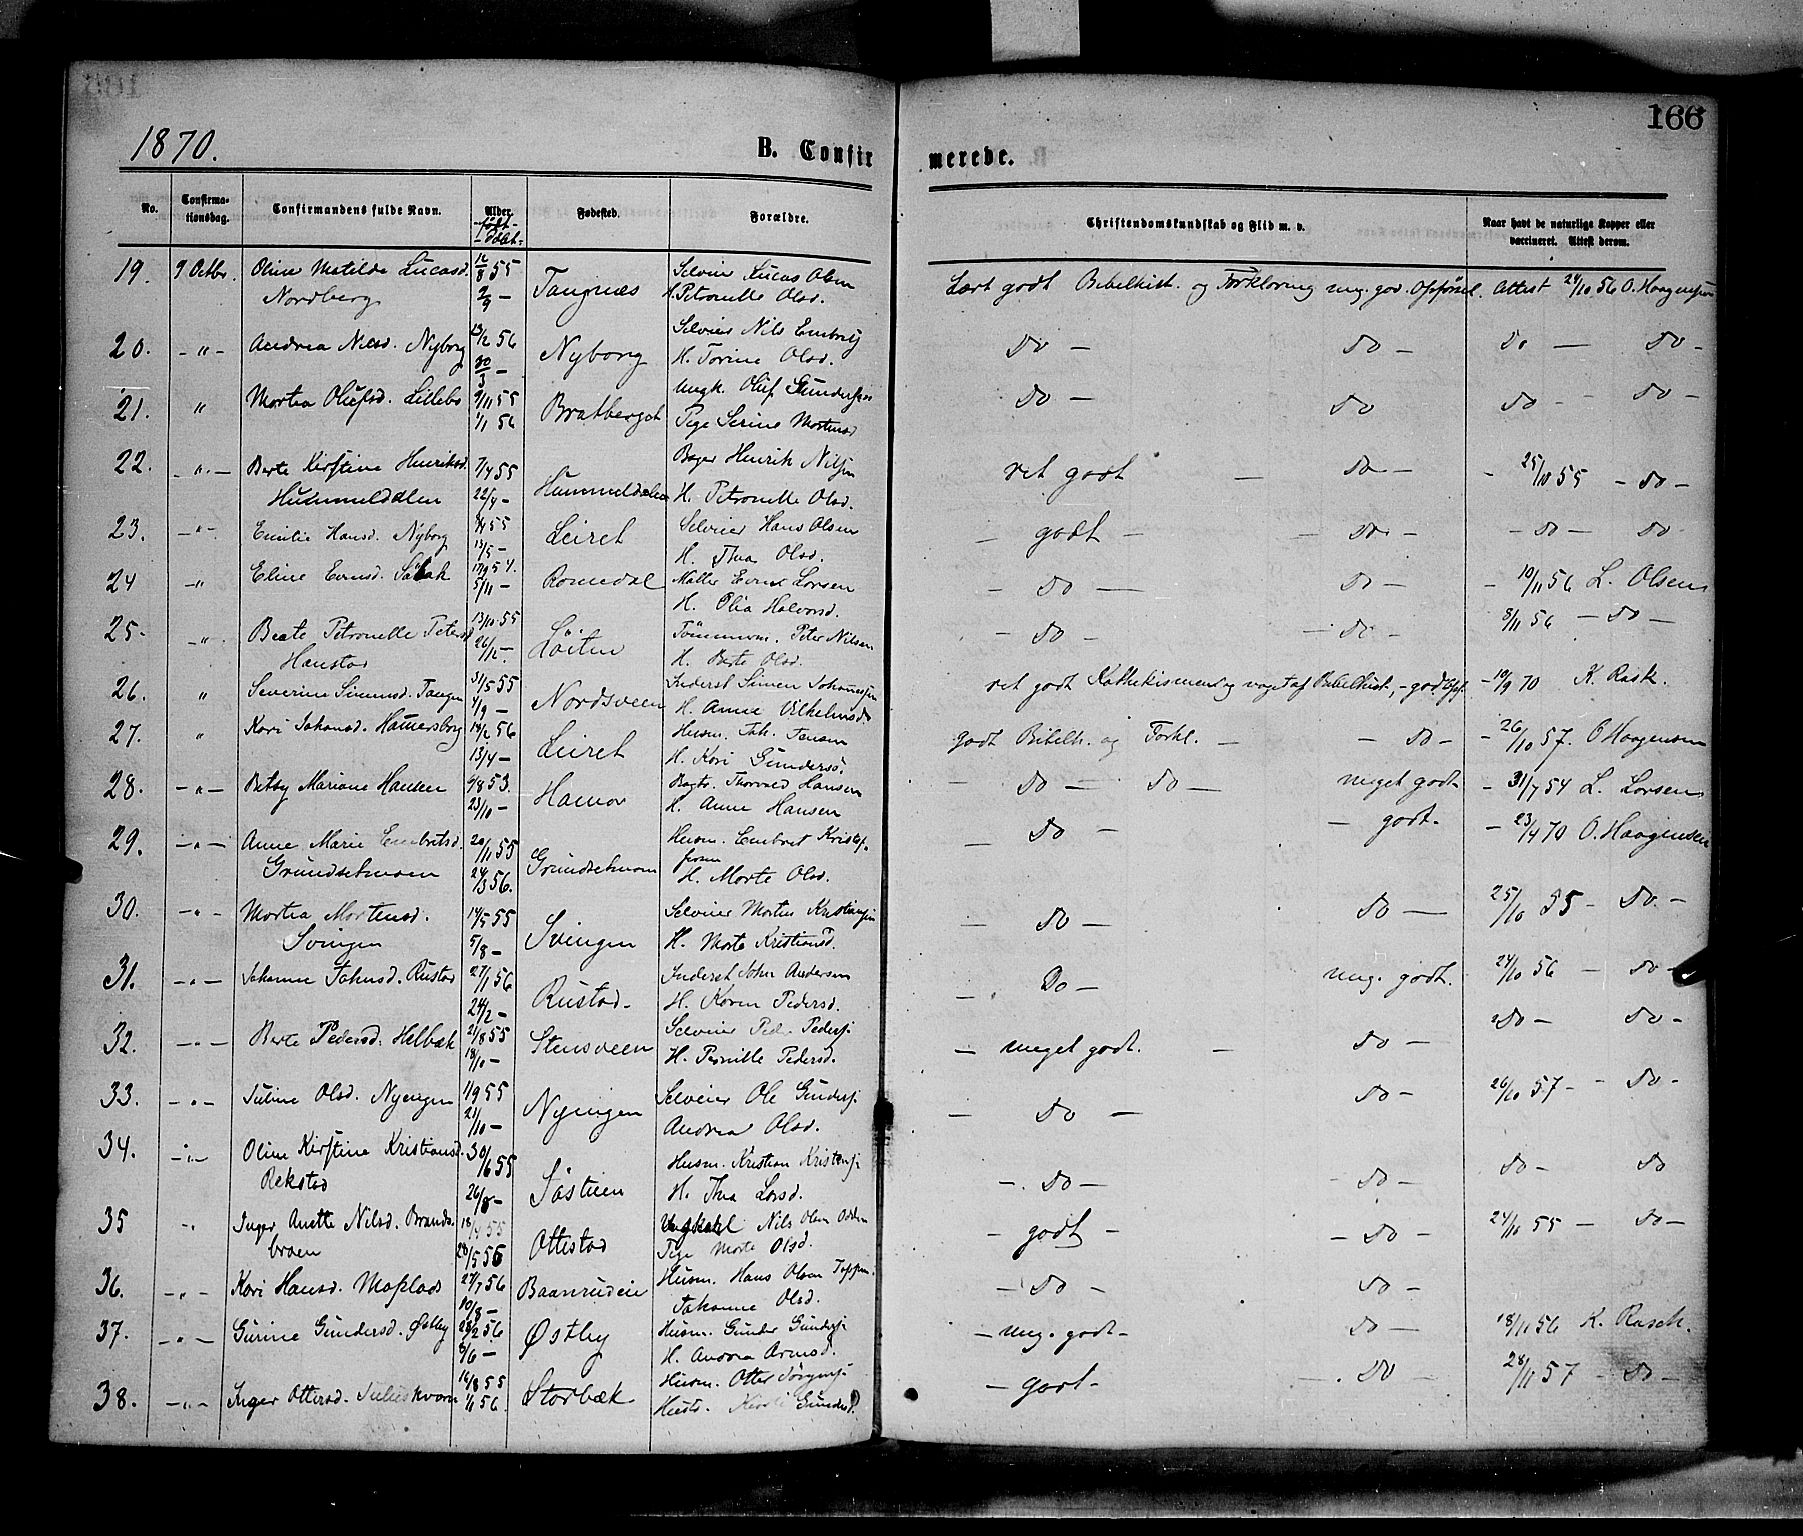 166
1870.
B. Confirmerede.
No. Confirmationsdag. Confirmandens fulde Navn. Alder født døbt Fødested. Forældre. Christendomskundskab og Flid m. v. Naar havt de naturlige Kopper eller vaccineret. Attest derom.
19. 9 Octbr. Oline Matilde Lucasd. 12/8 55 Tangnæs Selveier Lucas Olsen Lært godt Bibelhist. og Forklaring meg. god. Opførsel. Attest 24/10 56 O. Haagensen
Nordberg 2/9 – H. Petronelle Olsd.
20. – " – Andrea Nilsd. Nyborg 13/2 56 Nyborg Selveier Nils Embretsj Do – Do – Do – Do –
30/3 – H. Torine Olsd.
21. " Martea Olufsd. Lillebo 9/11 55 Bratberget Ungk. Oluf Gundersen Do – Do Do – Do –
1/1 56 Pige Serine Mortensd
22. – " – Berte Kirstine Henriksd. 7/4 55 Hummeldalen Bager Henrik Nilsen ret godt – Do – – 25/10 55 – Do –
Hummeldalen 22/4 – H. Petronelle Olsd.
23. – " – Emilie Hansd. Nyborg 8/4 55 Leiret Selveier Hans Olsen – godt – – Do – – Do – Do
13/5 – H. Thea Olsd.
24 – " Eline Evensd. Sæbak 17/9 54. Romedal Møller Even Larsen – Do – Do – – 10/11 56 L. Olsen
5/11 – H. Olia Halvorsd.
25 – " Beate Petronelle Petersd 13/10 55 Løiten Tømmerm. Peter Nilsen – Do – – Do – 8/11 56 – Do –
Hanstad 26/12 – H. Berte Olsd.
26. " Severine Simensd. Tangen 31/5 55 Nordsveen Inderst Simen Johannesen ret godt Kathekismen og noget af Bibelhist, – god Opf. – 19/9 70 K. Rask.
4/9 – H. Anne Vilhelmsd
27. " Kari Johansd. Hamersborg 14/2 56 Leiret Husm. Joh. Jensen godt Bibelh. og Forkl. – – Do – – 26/10 57. O Haagensen
13/4 – H. Kari Gundersd.
28. – " – Betsy Mariane Hansen 4/8 53. Hamar Bagtr. Thorvald Hansen – Do – Do – meget godt – 31/7 54 L. Larsen
23/10 – H. Anne Hansen
29. – " – Anne Marie Embretsd. 20/11 55 Grundsetmoen Husm. Embret Kristof- – Do – – godt. – 23/4 70 O. Haagensen
Grundsetmoen 24/3 56. fersen
H. Marte Olsd.
30. – " – Martea Mortensd. 14/5 55 Svingen Selveier Morten Kristiansen – Do – Do – 25/10 55 – Do. –
Svingen 5/8 – H. Marte Kristiansd.
31. – " – Johanne Johnsd. Rustad 27/1 56 Rustad – Inderst John Andersen – Do – meg. godt. 24/10 56 – Do –
24/2 – H. Karen Pedersd.
32. – " – Berte Pedersd. Helbæk 21/8 55 Stensveen Selveier Ped. Pedersj – meget godt. – Do – Do – Do –
18/10 – H. Pernille Pedersd.
33. – " – Juline Olsd. Nyengen 1/9 55 Nyengen Selveier Ole Gundersj. – Do – Do – 26/10 57 – – Do –
21/10 – Andrea Olsd.
34. – " – Oline Kirstine Kristiansd. 30/6 55 Søstuen Husm. Kristian Kristensj. – Do – – Do – Do – Do
Rekstad 26/8 – H. Thea Larsd.
35 " Inger Anette Nilsd. Brands- 18/4 55 Ottestad Ungkarl Nils Olsen Odden – godt – – Do – 24/10 55 – Do –
broen 28/5 55 Pige Marte Olsd.
36. – " – Kari Hansd. Moplads 27/7 56 Baanrudeie Husm. Hans Olsen Toppen. – Do – Do –
10/8 – Johanne Olsd.
37. – " – Gurine Gundersd. Østby 28/2 56 Østby Husm. Gunder Gundersj. – meg. godt – Do – 18/11 56 K. Rasch.
8/6 – H. Andrea Arnesd.
38. – " – Inger Ottersd. Juliuskværn 16/8 55 Storbæk Husm. Otter Jörgensj. – godt – – Do – 28/11 57 – Do –
1/1 56. Hustr. Gundersd.